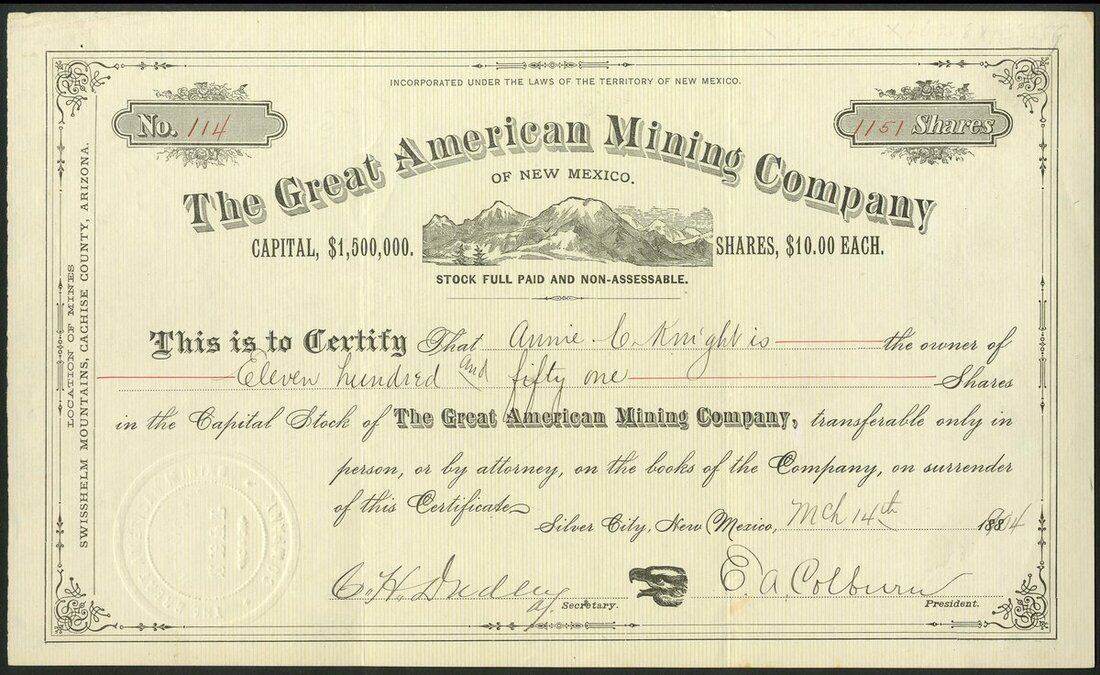 INCORPORATED UNDER THE LAWS OF THE TERRITORY OF NEW MEXICO.
No. 114
1151 Shares
The Great American Mining Company
OF NEW MEXICO.
CAPITAL, $1,500,000.
SHARES, $10.00 EACH.
STOCK FULL PAID AND NON-ASSESSABLE.
LOCATION OF MINES
SWISSHELM MOUNTAINS, CACHISE COUNTY, ARIZONA.
This is to Certify That Annie C. Knight is the owner of
Eleven hundred and fifty one Shares
in the Capital Stock of The Great American Mining Company, transferable only in
person, or by attorney, on the books of the Company, on surrender
of this Certificate
Silver City, New Mexico, Mch 14th 188
C. H. Secretary.
E. A. Colburn President.